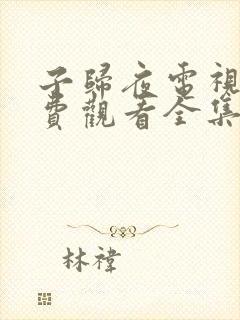 子歸夜電視
費觀看全集
林禕